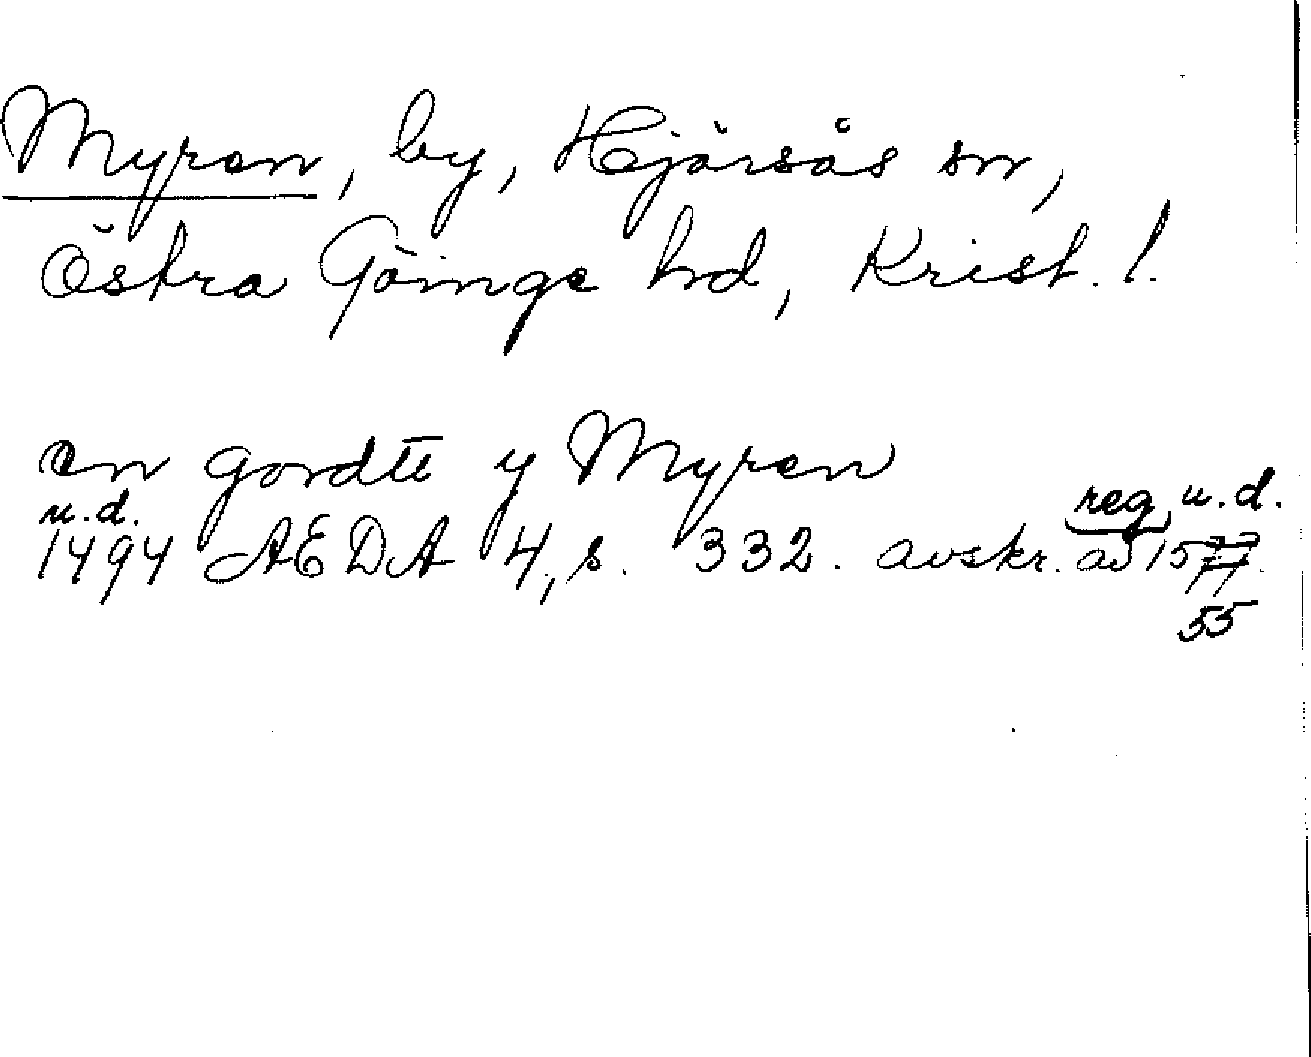 Myren, by, Hjärsås sn,
Östra Göinge hd, Krist. l.
en gordtt y Myren
u.d.
1494 AEDA 4, s. 332. avskr. av reg, u.d. 1577.
55